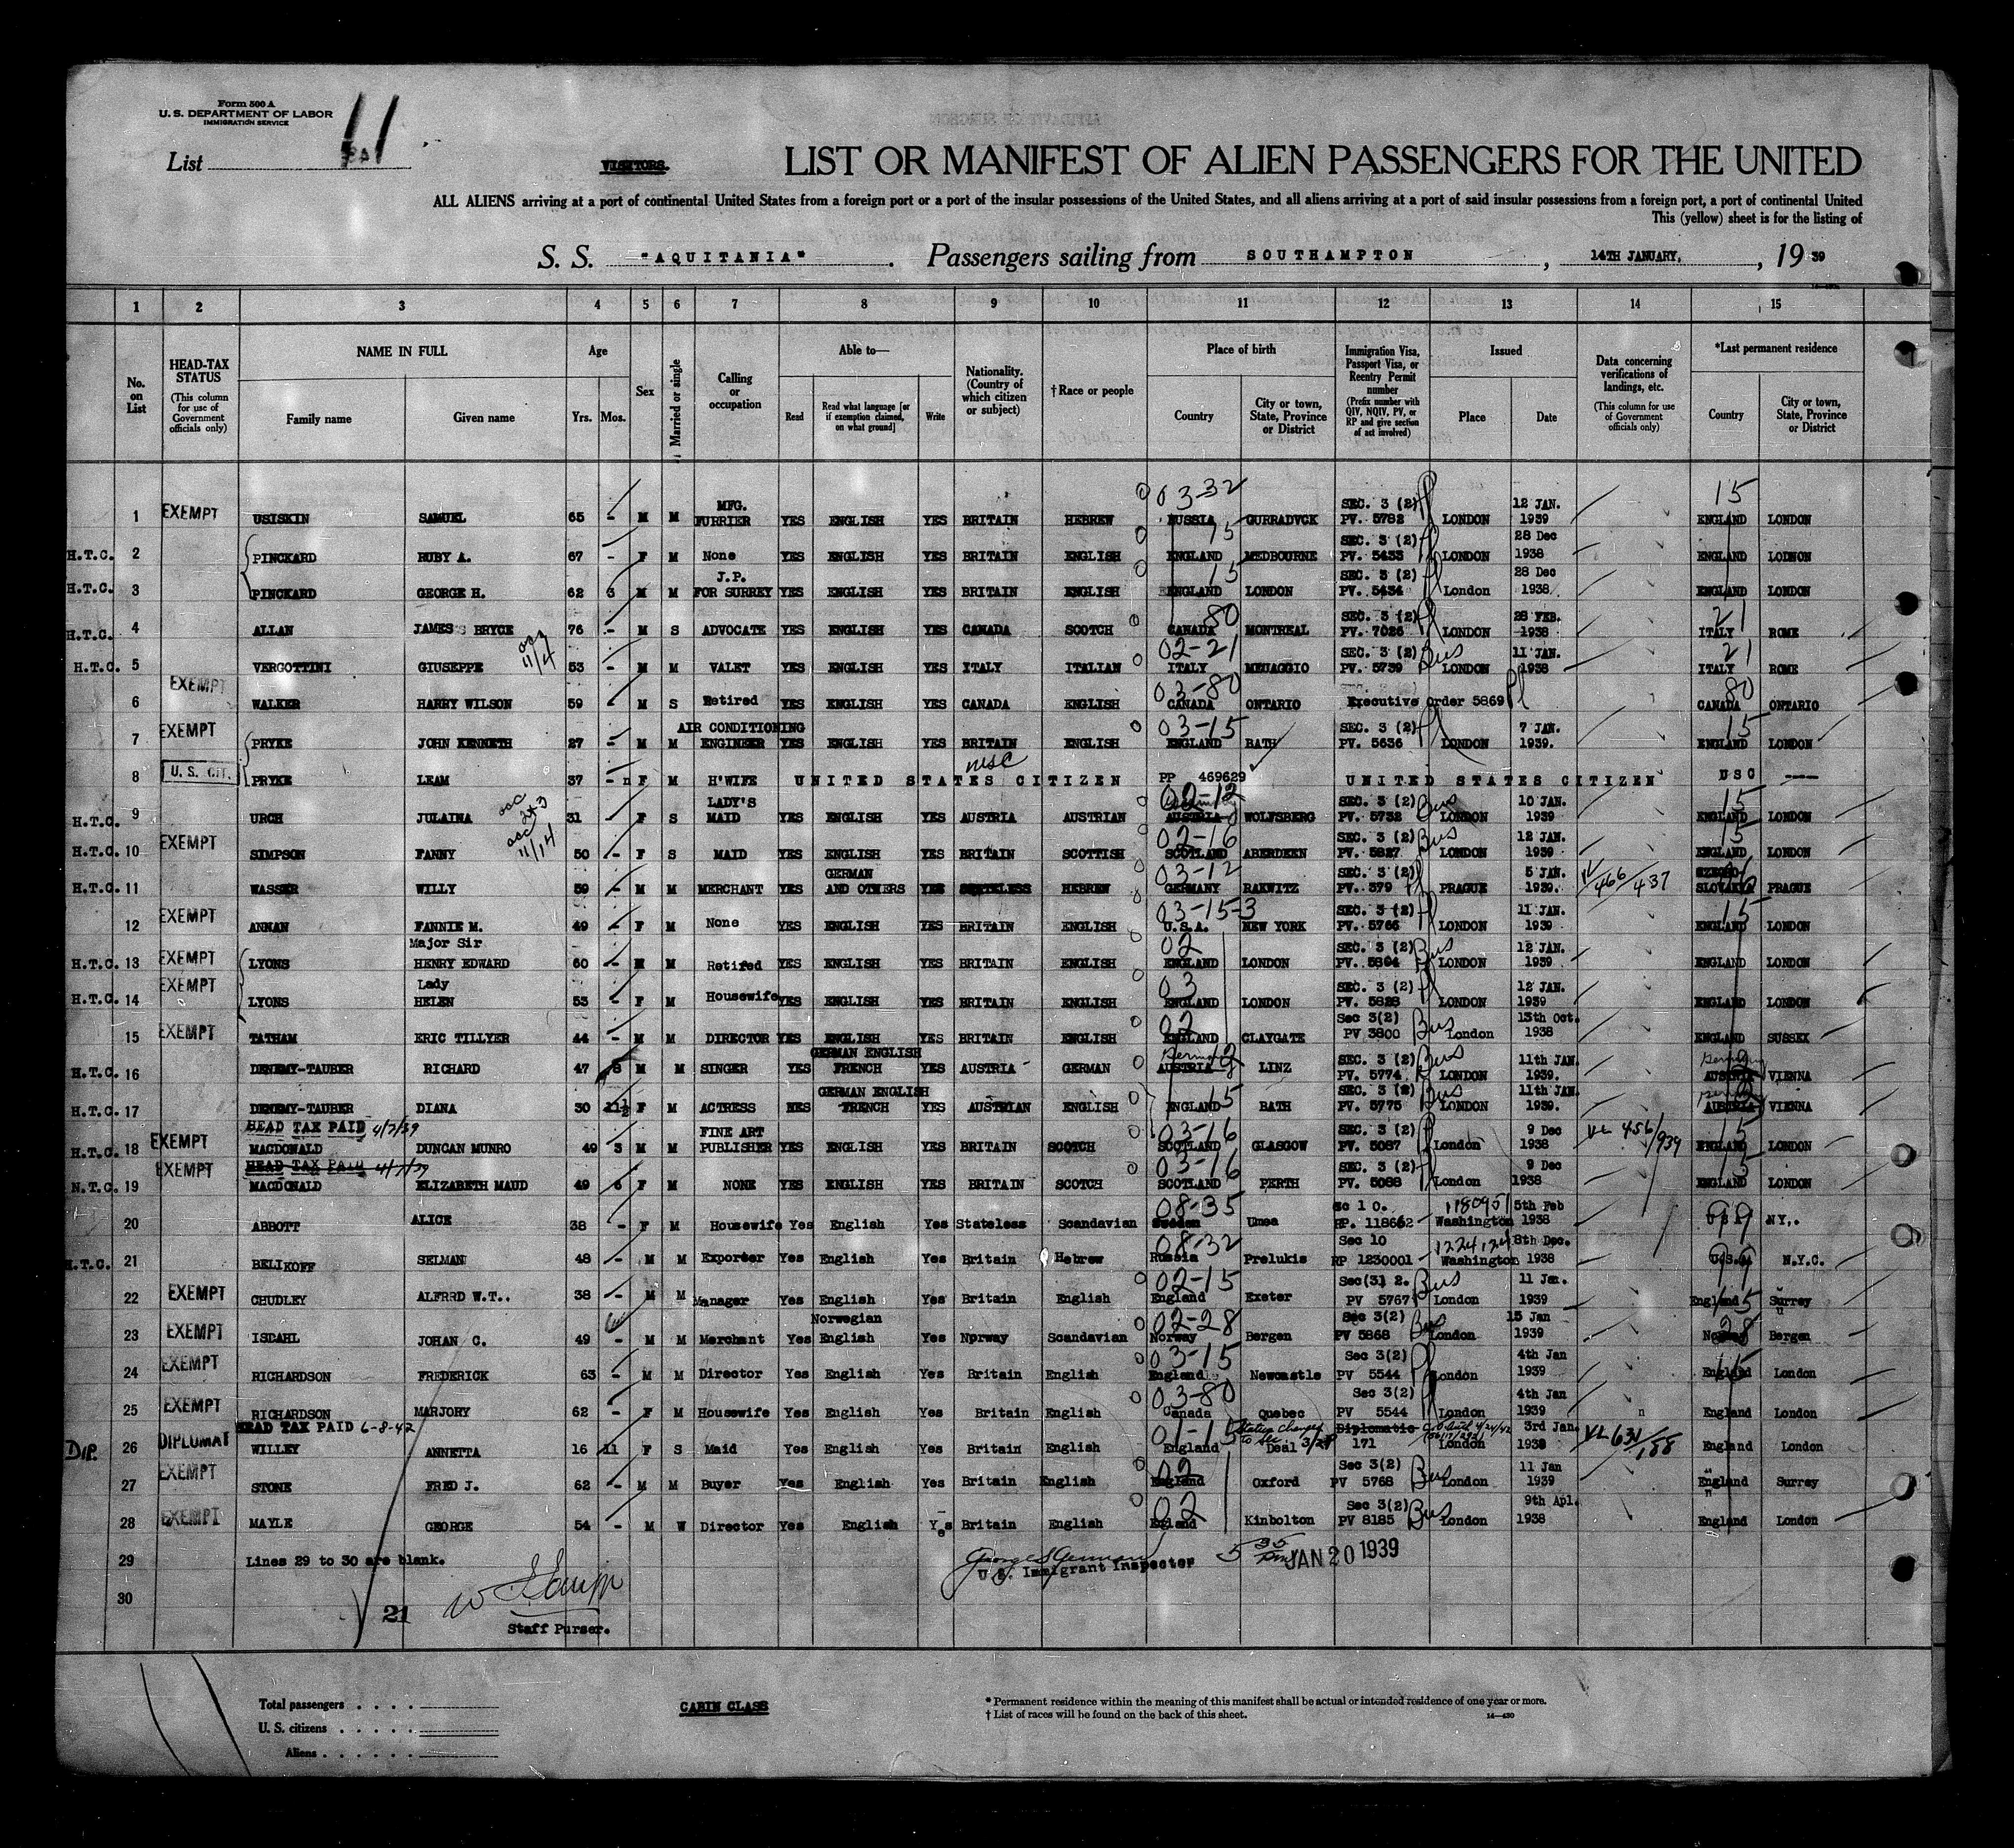 Form 500 A
U. S. DEPARTMENT OF LABOR
IMMIGRATION SERVICE
List 11
VISITORS.
LIST OR MANIFEST OF ALIEN PASSENGERS FOR THE UNITED
ALL ALIENS arriving at a port of continental United States from a foreign port or a port of the insular possessions of the United States, and all aliens arriving at a port of said insular possessions from a foreign port, a port of continental United
This (yellow) sheet is for the listing of
S. S. "AQUITANIA". Passengers sailing from SOUTHAMPTON, 14TH JANUARY, 1939
1 2 3 4 5 6 7 8 9 10 11 12 13 14 15
No. on List
HEAD-TAX STATUS (This column for use of Government officials only)
NAME IN FULL
Family name Given name
Age
Yrs. Mos.
Sex
Married or single
Calling or occupation
Able to—
Read Read what language [or if exemption claimed, on what ground] Write
Nationality. (Country of which citizen or subject)
† Race or people
Place of birth
Country City or town, State, Province or District
Immigration Visa, Passport Visa, or Reentry Permit number (Prefix number with QIV, NQIV, PV, or RP and give section of act involved)
Issued
Place Date
Data concerning verifications of landings, etc. (This column for use of Government officials only)
*Last permanent residence
Country City or town, State, Province or District
1 EXEMPT USISKIN SAMUEL 65 - M M MFG. FURRIER YES ENGLISH YES BRITAIN HEBREW 03-32 RUSSIA GURRADVCK SEC. 3 (2) PV. 5782 LONDON 12 JAN. 1939 15 ENGLAND LONDON
H.T.C. 2 PINCKARD RUBY A. 67 - F M None YES ENGLISH YES BRITAIN ENGLISH 15 ENGLAND MEDBOURNE SEC. 3 (2) PV. 5433 LONDON 28 Dec 1938 ENGLAND LODNON
H.T.C. 3 PINCKARD GEORGE H. 62 6 M M J.P. FOR SURREY YES ENGLISH YES BRITAIN ENGLISH 15 ENGLAND LONDON SEC. 3 (2) PV. 5434 London 28 Dec 1938. ENGLAND LONDON
H.T.C. 4 ALLAN JAMES BRYCE 76 - M S ADVOCATE YES ENGLISH YES CANADA SCOTCH 80 CANADA MONTREAL SEC. 3 (2) PV. 7026 LONDON 28 FEB. 1938 21 ITALY ROME
H.T.C. 5 VERGOTTINI GIUSEPPE 11/14 53 - M M VALET YES ENGLISH YES ITALY ITALIAN 02-21 ITALY MENAGGIO SEC. 3 (2) Bus PV. 5739 LONDON 11 JAN. 1938 21 ITALY ROME
EXEMPT 6 WALKER HARRY WILSON 59 - M S Retired YES ENGLISH YES CANADA ENGLISH 03-80 CANADA ONTARIO Executive Order 5869 80 CANADA ONTARIO
7 EXEMPT PRYKE JOHN KENNETH 27 - M M AIR CONDITIONING ENGINEER YES ENGLISH YES BRITAIN ENGLISH 03-15 ENGLAND BATH SEC. 3 (2) PV. 5636 LONDON 7 JAN. 1939. 15 ENGLAND LONDON
8 U. S. CIT. PRYKE LEAM 37 - F M H'WIFE UNITED STATES CITIZEN PP 469629 UNITED STATES CITIZEN USC ----
H.T.C. 9 URCH JULAINA 31 F S LADY'S MAID YES ENGLISH YES AUSTRIA AUSTRIAN 02-12 AUSTRIA WOLFSBERG SEC. 3 (2) Bus PV. 5732 LONDON 10 JAN. 1939 15 ENGLAND LONDON
H.T.C. 10 EXEMPT SIMPSON FANNY 11/14 50 - F S MAID YES ENGLISH YES BRITAIN SCOTTISH 02-16 SCOTLAND ABERDEEN SEC. 3 (2) Bus PV. 5827 LONDON 12 JAN. 1939 15 ENGLAND LONDON
H.T.C. 11 WASSER WILLY 59 - M M MERCHANT YES GERMAN AND OTHERS YES STATELESS HEBREW 03-12 GERMANY RAKWITZ SEC. 3 (2) PV. 379 PRAGUE 5 JAN. 1939. VL 466/437 SLOVAKIA PRAGUE
12 EXEMPT ANNAN FANNIE M. 49 - F M None YES ENGLISH YES BRITAIN ENGLISH 03-15-3 U.S.A. NEW YORK SEC. 3 (2) PV. 5766 LONDON 11 JAN. 1939 15 ENGLAND LONDON
H.T.C. 13 EXEMPT LYONS Major Sir HENRY EDWARD 60 - M M Retired YES ENGLISH YES BRITAIN ENGLISH 02 ENGLAND LONDON SEC. 3 (2) Bus PV. 5804 LONDON 12 JAN. 1939 ENGLAND LONDON
H.T.C. 14 EXEMPT LYONS Lady HELEN 53 - F M Housewife YES ENGLISH YES BRITAIN ENGLISH 03 ENGLAND LONDON SEC. 3 (2) PV. 5828 LONDON 12 JAN. 1939 ENGLAND LONDON
15 EXEMPT TATHAM ERIC TILLYER 44 - M M DIRECTOR YES ENGLISH YES BRITAIN ENGLISH 02 ENGLAND CLAYGATE Sec 3(2) Bus PV 3800 London 13th Oct. 1938 ENGLAND SUSSEX
H.T.C. 16 DENEMY-TAUBER RICHARD 47 8 M M SINGER YES GERMAN ENGLISH FRENCH YES AUSTRIA GERMAN Germany 12 AUSTRIA LINZ SEC. 3 (2) Bus PV. 5774 LONDON 11th JAN. 1939. Germany AUSTRIA VIENNA
H.T.C. 17 DENEMY-TAUBER DIANA 30 11½ F M ACTRESS HES GERMAN ENGLISH FRENCH YES AUSTRIAN ENGLISH 15 ENGLAND BATH SEC. 3 (2) Bus PV. 5775 LONDON 11th JAN. 1939. Germany AUSTRIA VIENNA
HEAD TAX PAID 4/7/39
H.T.C. 18 EXEMPT MACDONALD DUNCAN MUNRO 49 3 M M FINE ART PUBLISHER YES ENGLISH YES BRITAIN SCOTCH 03-16 SCOTLAND GLASGOW SEC. 3 (2) PV. 5087 London 9 Dec 1938 VL 456/939 15 ENGLAND LONDON
HEAD TAX PAID 4/7/39
N.T.C. 19 EXEMPT MACDONALD ELIZABETH MAUD 49 6 F M NONE YES ENGLISH YES BRITAIN SCOTCH 03-16 SCOTLAND PERTH SEC. 3 (2) PV. 5088 London 9 Dec 1938 15 ENGLAND LONDON
20 ABBOTT ALICE 38 - F M Housewife Yes English Yes Stateless Scandavian 08-35 Sweden Umea Sec 10. RP. 118662 1180951 Washington 5th Feb 1938 99 USA NY,.
H.T.C. 21 BELIKOFF SELMAN 48 - M M Exporter Yes English Yes Britain Hebrew 08-32 Russia Prelukis Sec 10 RP 1230001 1224124 Washington 8th Dec. 1938 99 U.S.A N.Y.C.
22 EXEMPT CHUDLEY ALFRRD W.T.. 38 - M M Manager Yes English Yes Britain English 02-15 England Exeter Sec(3) 2. Bus PV 5767 London 11 Jan. 1939 15 England Surrey
23 EXEMPT ISDAHL JOHAN C. 49 - M M Merchant Yes Norwegian English Yes Norway Scandavian 02-28 Norway Bergen Sec 3(2) Bus PV 5868 London 15 Jan 1939 28 Norway Bergen
24 EXEMPT RICHARDSON FREDERICK 63 - M M Director Yes English Yes Britain English 03-15 England Newcastle Sec 3(2) PV 5544 London 4th Jan 1939 15 England London
25 EXEMPT RICHARDSON MARJORY 62 - F M Housewife Yes English Yes Britain English 03-80 Canada Quebec Sec 3(2) PV 5544 London 4th Jan 1939 England London
HEAD TAX PAID 6-8-42
DIP. 26 DIPLOMAT WILLEY ANNETTA 16 11 F S Maid Yes English Yes Britain English 01-15 England Deal Status changed to Sec. 3/2 Diplomatic 171 London 3rd Jan. 1938 VL 631/188 England London
27 EXEMPT STONE FRED J. 62 - M M Buyer Yes English Yes Britain English 02 England Oxford Sec 3(2) Bus PV 5768 London 11 Jan 1939 England Surrey
28 EXEMPT MAYLE GEORGE 54 - M W Director Yes English Yes Britain English 02 England Kinbolton Sec 3(2) Bus PV 8185 London 9th Apl. 1938 England London
29 Lines 29 to 30 are blank.
U.S. Immigrant Inspector 5 35 pm JAN 20 1939
30
21
Staff Purser.
Total passengers . . . .
U. S. citizens . . . . .
Aliens . . . . . .
CABIN CLASS
* Permanent residence within the meaning of this manifest shall be actual or intended residence of one year or more.
† List of races will be found on the back of this sheet.
14—430